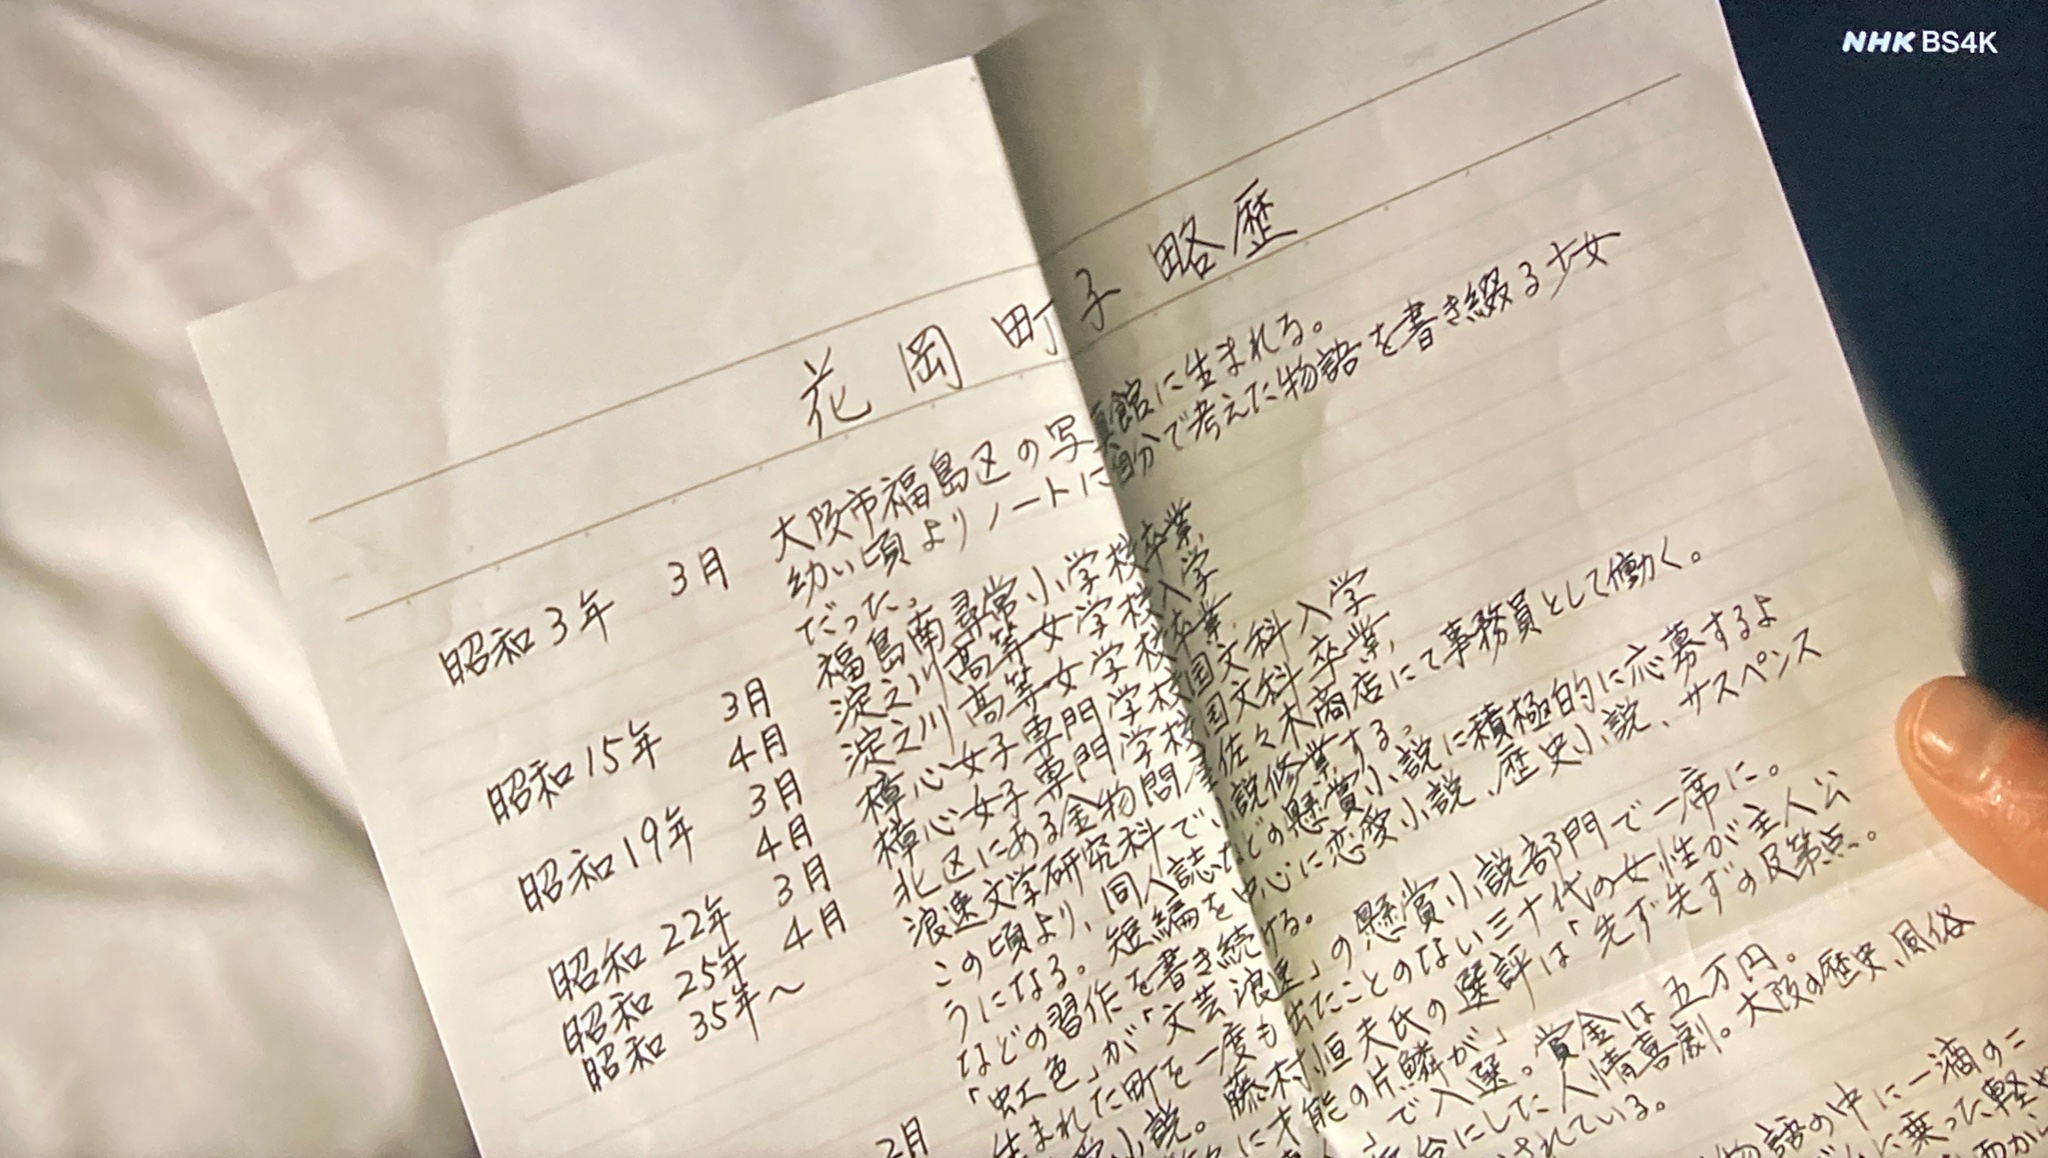 NHK BS4K
花岡町子 略歴
昭和3年 3月 大阪市福島区の写真館に生まれる。
幼い頃よりノートに自分で考えた物語を書き綴る少女
だった。
昭和15年 3月 福島南尋常小学校卒業
4月 淀之川高等女学校入学
昭和19年 3月 淀之川高等女学校卒業
4月 樟心女子専門学校国文科入学
昭和22年 3月 樟心女子専門学校国文科卒業
4月 北区にある金物問屋佐々木商店にて事務員として働く。
昭和25年 浪速文学研究科で小説修業する。
昭和35年〜 この頃より、同人誌などの懸賞小説に積極的に応募するよ
うになる。短編を中心に恋愛小説、歴史小説、サスペンス
などの習作を書き続ける。
2月 「虹色」が「文芸浪速」の懸賞小説部門で一席に。
生まれた町を一度も出たことのない三十代の女性が主人公
小説。藤村恒夫氏の選評は「先ず先ずの及第点。
に才能の片鱗が」
」で入選。賞金は五万円。
台にした人情喜劇。大阪の歴史、風俗
されている。
物語の中に一滴の
に乗った軽や